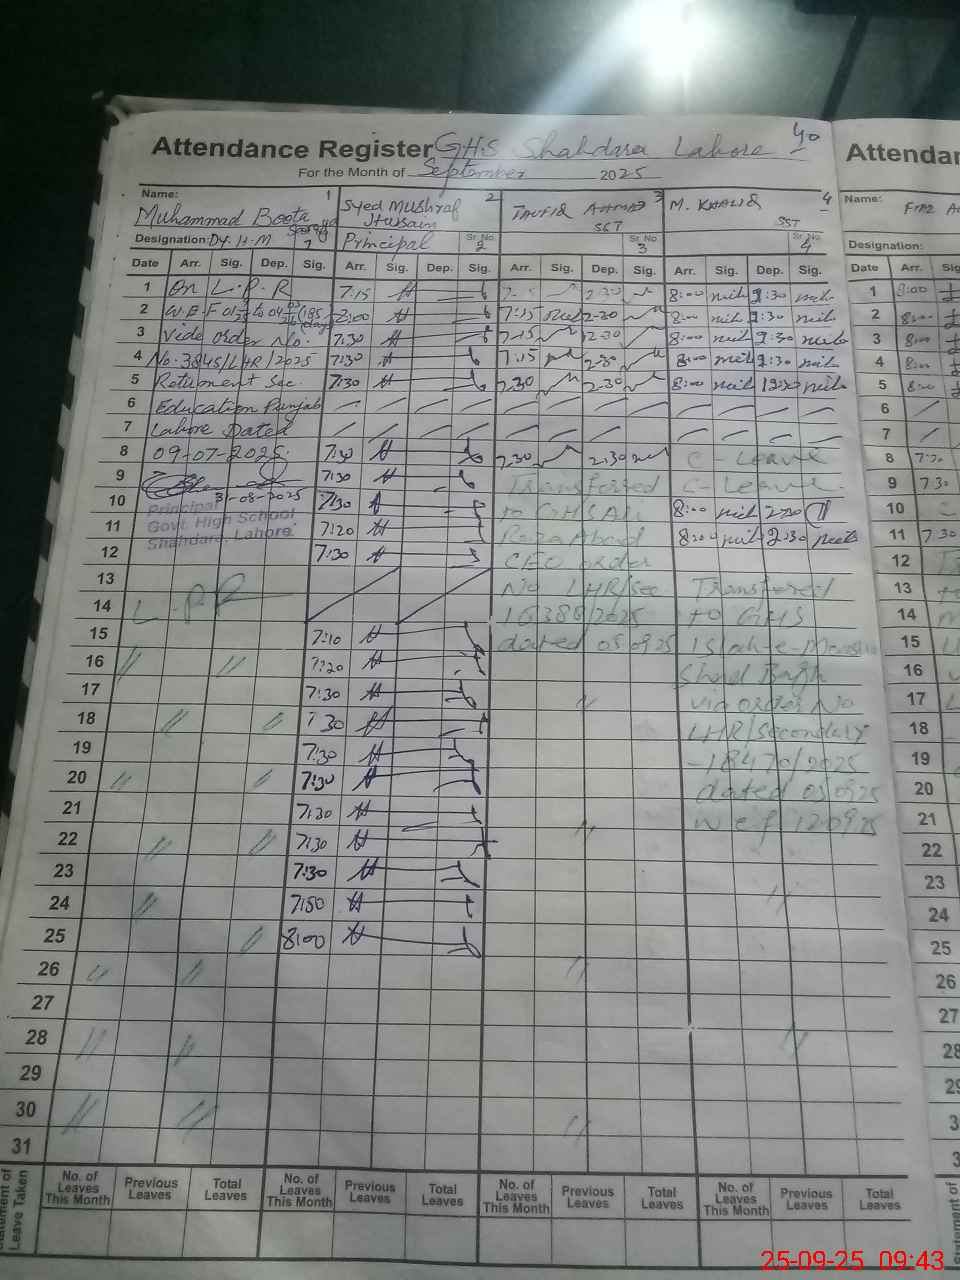 40
Attendance Register GHS Shahdara Lahore
For the Month of September 2025
Name: 1
Muhammad Boota
Designation: Dy. H.M
1
2
Syed Mushraf Hussain
Principal
Sr. No. 2
3
Taufiq Ahmad
SST
Sr. No. 3
4
M. KHALID
SST
Sr. No. 4
Date Arr. Sig. Dep. Sig. Arr. Sig. Dep. Sig. Arr. Sig. Dep. Sig. Arr. Sig. Dep. Sig.
1 On L.P.R 7:15 7:15 2:30 8:00 2:30
2 W.E.F to (185 days) 8:00 7:15 2:30 8:00 2:30
3 Vide order No. 7:30 7:15 2:30 8:00 2:30
4 No. 3845/LHR/2025 7:30 7:15 2:30 8:00 2:30
5 Retirement Sec. 7:30 7:30 2:30 8:00 12:30
6 Education Punjab
7 Lahore Dated
8 09-07-2025 7:30 7:30 2:30 C-Leave
9 7:30 Transferred C-Leave
10 31-08-2025 7:30 to GHS Ali 8:00 2:30
Principal
Govt. High School
Shahdara, Lahore.
11 7:20 Raza Abad 8:00 2:30
12 7:30 CEO order
13 No LHR/sec Transferred
14 L.PR 16388/2025 to GHS
15 7:10 dated 050925 Islah-e-
16 7:20 Shad Bagh
17 7:30 via order No
18 7:30 LHR/secondary
19 7:30 -18470/2025
20 7:30 dated 050925
21 7:30 w e f 120925
22 7:30
23 7:30
24 7:50
25 8:00
26
27
28
29
30
31
Statement of Leave Taken
No. of Leaves This Month Previous Leaves Total Leaves No. of Leaves This Month Previous Leaves Total Leaves No. of Leaves This Month Previous Leaves Total Leaves No. of Leaves This Month Previous Leaves Total Leaves
Attendan
Name:
Designation:
Date Arr. Sig
1 8:00
2 8:00
3 8:00
4 8:00
5 8:00
6
7
8 7:30
9 7:30
10 C
11 7:30
12
13
14
15
16
17
18
19
20
21
22
23
24
25
26
27
28
29
25-09-25 09:43